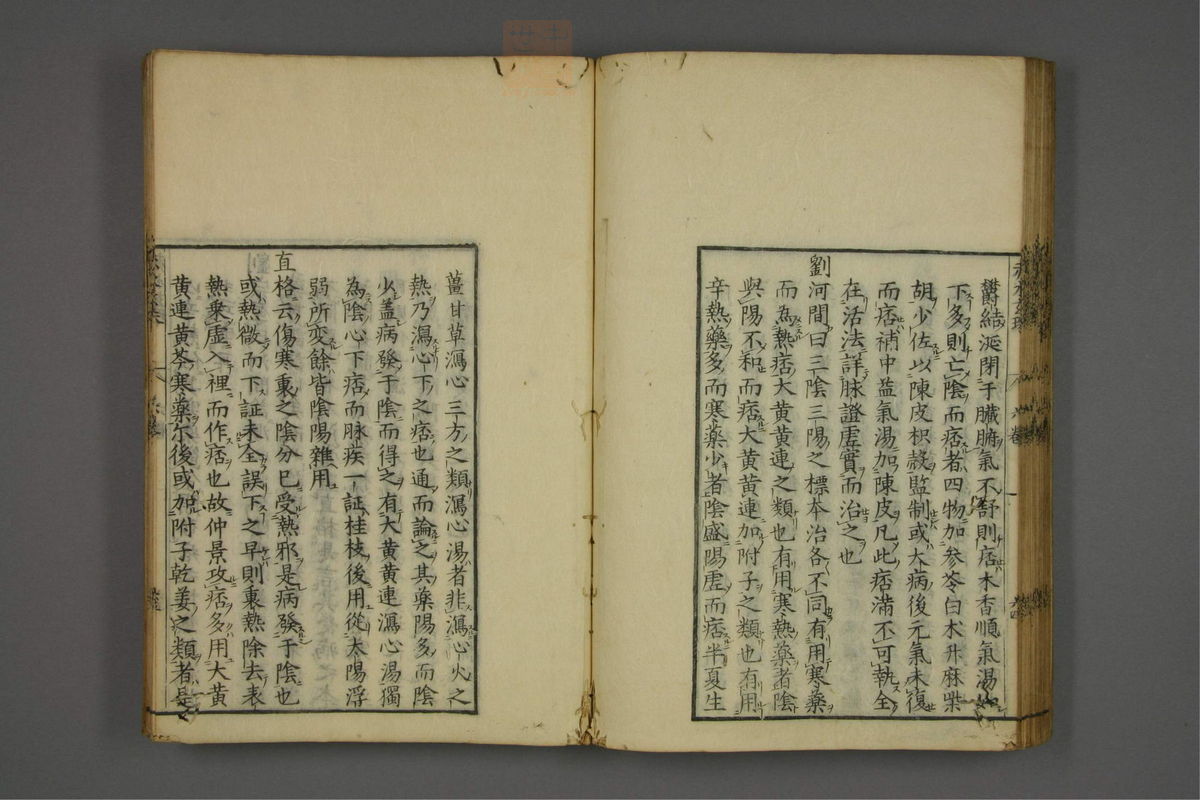 欝結涎閉于臓腑氣不舒則痞木香順氣湯
下多則亡陰而痞者四物加参苓白术升麻柴
胡少佐以陳皮枳殻監制或大病後元氣未復
而痞補中益氣湯加陳皮凡此痞滿不可執全
在活法詳脉證虚實而治之也
劉河間曰三陰三陽之標本治各不同有用寒藥
而為熱痞大黄黄連之類也有用寒熱藥者陰
與陽不和而痞大黄黄連加附子之類也有用
辛熱藥多而寒藥少者陰盛陽虚而痞半夏生
薑甘草瀉心三方之類瀉心湯者非瀉心火之
熱乃瀉心下之痞也通而論之其藥陽多而陰
少盖病發于陰而得之有大黄黄連瀉心湯獨
為陰心下痞而脉疾一証桂枝後用從太陽浮
弱所变餘皆陰陽雜用
直格云傷寒稟之陰分已受熱邪是病發于陰也
或熱微而下証未全誤下之早則稟熱除去表
熱乗虚入裡而作痞也故仲景攻痞多用大黄
黄連黄芩寒藥尔後或加附子乾姜之類者是